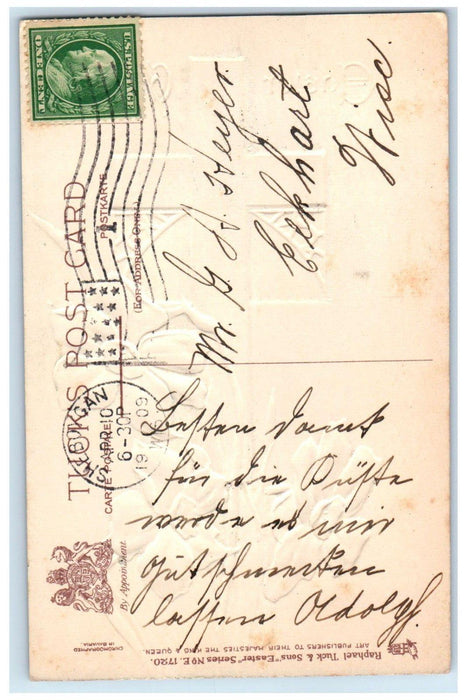 U.S.POSTAGE
ONE CENT
TUCK'S POST CARD
CARTE POSTALE
POSTKARTE
(FOR ADDRESS ONLY)
SHEBOYGAN
APR 10
6-30P
1909
WIS.
Mr. G A Heyer
Eckhart
Wisc.
Besten Dank
für die Küste
werde es mir
gutschmecken
lassen Adolph.
By Appointment.
CHROMOGRAPHED
IN BAVARIA
Raphael Tuck & Sons' "Easter" Series No E. 1720.
ART PUBLISHERS TO THEIR MAJESTIES THE KING & QUEEN.